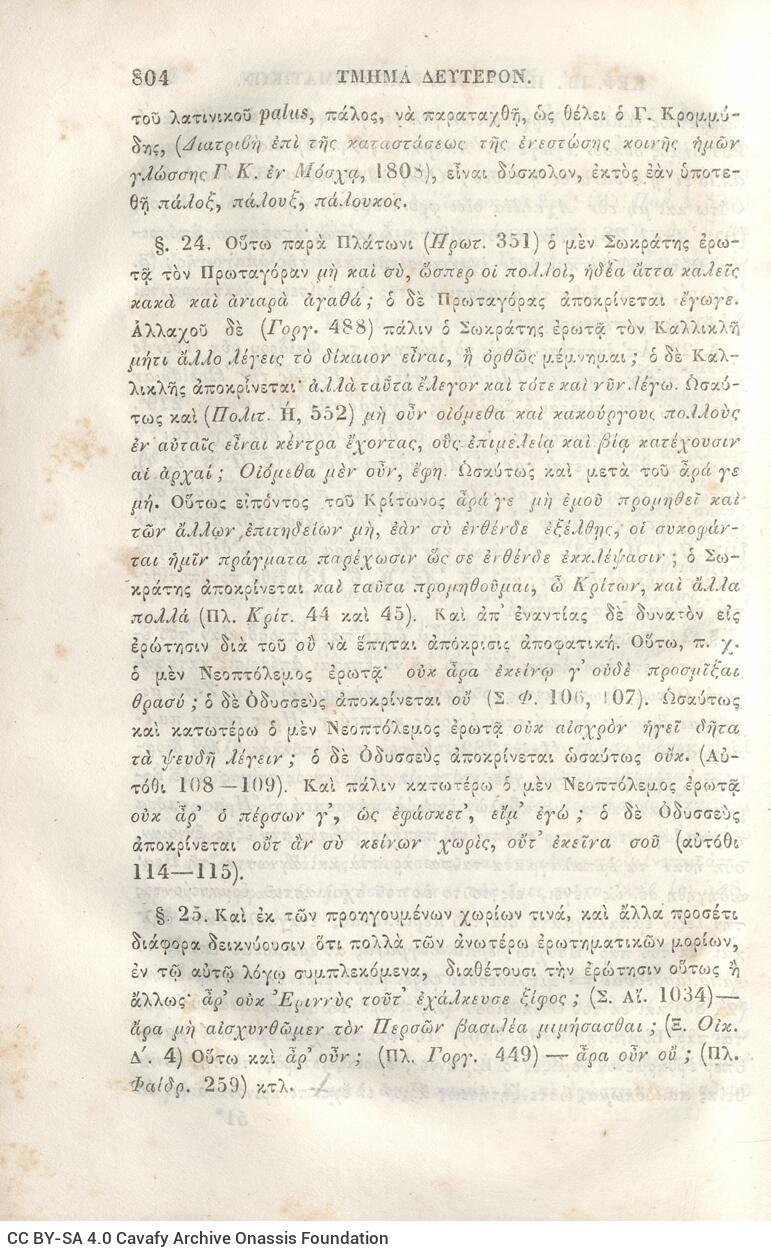 804 ΤΜΗΜΑ ΔΕΥΤΕΡΟΝ.
τοῦ λατινικοῦ palus, πάλος, νὰ παραταχθῇ, ὡς θέλει ὁ Γ. Κρομμύ-
δης, (Διατριβὴ ἐπὶ τῆς καταστάσεως τῆς ἐνεστώσης κοινῆς ἡμῶν
γλώσσης Γ. Κ. ἐν Μόσχᾳ, 1808), εἶναι δύσκολον, ἐκτὸς ἐὰν ὑποτε-
θῇ πάλοξ, πάλουξ, πάλουκος.
§. 24. Οὕτω παρὰ Πλάτωνι (Πρωτ. 351) ὁ μὲν Σωκράτης ἐρω-
τᾷ τὸν Πρωταγόραν μὴ καὶ σὺ, ὥσπερ οἱ πολλοὶ, ἡδέα ἄττα καλεῖς
κακὰ καὶ ἀνιαρὰ ἀγαθά; ὁ δὲ Πρωταγόρας ἀποκρίνεται ἔγωγε.
Ἀλλαχοῦ δὲ (Γοργ. 488) πάλιν ὁ Σωκράτης ἐρωτᾷ τὸν Καλλικλῆ
μήτι ἄλλο λέγεις τὸ δίκαιον εἶναι, ἢ ὀρθῶς μέμνημαι; ὁ δὲ Καλ-
λικλῆς ἀποκρίνεται· ἀλλὰ ταῦτα ἔλεγον καὶ τότε καὶ νῦν λέγω. Ὡσαύ-
τως καὶ (Πολιτ. Ή, 552) μὴ οὖν οἰόμεθα καὶ κακούργους πολλοὺς
ἐν αὐταῖς εἶναι κέντρα ἔχοντας, οὓς ἐπιμελείᾳ καὶ βίᾳ κατέχουσιν
αἱ ἀρχαί; Οἰόμεθα μὲν οὖν, ἔφη. Ὡσαύτως καὶ μετὰ τοῦ ἆρά γε
μή. Οὕτως εἰπόντος τοῦ Κρίτωνος ἆρά γε μὴ ἐμοῦ προμηθεῖ καὶ
τῶν ἄλλων ἐπιτηδείων μὴ, ἐὰν σὺ ἐνθένδε ἐξέλθῃς, οἱ συκοφάν-
ται ἡμῖν πράγματα παρέχωσιν ὥς σε ἐνθένδε ἐκκλέψασιν; ὁ Σω-
κράτης ἀποκρίνεται καὶ ταῦτα προμηθοῦμαι, ὦ Κρίτων, καὶ ἄλλα
πολλά (Πλ. Κρίτ. 44 καὶ 45). Καὶ ἀπ᾽ ἐναντίας δὲ δυνατὸν εἰς
ἐρώτησιν διὰ τοῦ οὐ νὰ ἕπηται ἀπόκρισις ἀποφατική. Οὕτω, π. χ.
ὁ μὲν Νεοπτόλεμος ἐρωτᾷ· οὐκ ἄρα ἐκείνῳ γ᾽ οὐδὲ προσμῖξαι
θρασύ; ὁ δὲ Ὀδυσσεὺς ἀποκρίνεται οὔ (Σ. Φ. 106, 107). Ὡσαύτως
καὶ κατωτέρω ὁ μὲν Νεοπτόλεμος ἐρωτᾷ οὐκ αἰσχρὸν ἡγεῖ δῆτα
τὰ ψευδῆ λέγειν; ὁ δὲ Ὀδυσσεὺς ἀποκρίνεται ὡσαύτως οὐκ. (Αὐ-
τόθι 108—109). Καὶ πάλιν κατωτέρω ὁ μὲν Νεοπτόλεμος ἐρωτᾷ
οὐκ ἆρ᾽ ὁ πέρσων γ᾽, ὡς ἐφάσκετ᾽, εἴμ᾽ ἐγώ; ὁ δὲ Ὀδυσσεὺς
ἀποκρίνεται οὔτ᾽ ἂν σὺ κείνων χωρὶς, οὔτ᾽ ἐκεῖνα σοῦ (αὐτόθι
114—115).
§. 25. Καὶ ἐκ τῶν προηγουμένων χωρίων τινά, καὶ ἄλλα προσέτι
διάφορα δεικνύουσιν ὅτι πολλὰ τῶν ἀνωτέρω ἐρωτηματικῶν μορίων,
ἐν τῷ αὐτῷ λόγῳ συμπλεκόμενα, διαθέτουσι τὴν ἐρώτησιν οὕτως ἢ
ἄλλως· ἆρ᾽ οὐκ Ἐριννὺς τοῦτ᾽ ἐχάλκευσε ξίφος; (Σ. Αἴ. 1034)—
ἆρα μὴ αἰσχυνθῶμεν τὸν Περσῶν βασιλέα μιμήσασθαι; (Ξ. Οἰκ.
Δ΄. 4) Οὕτω καὶ ἆρ᾽ οὖν; (Πλ. Γοργ. 449) — ἆρα οὖν οὐ; (Πλ.
Φαίδρ. 259) κτλ.
CC BY-SA 4.0 Cavafy Archive Onassis Foundation